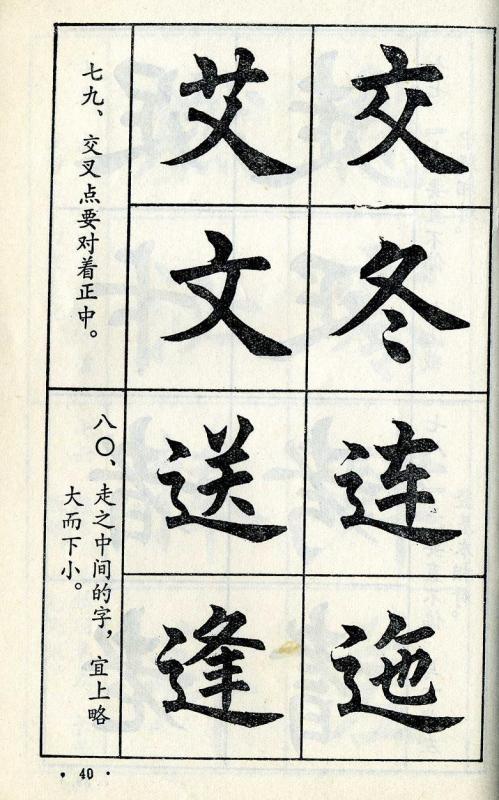 七九、交叉点要对着正中。
交
冬
艾
文
八〇、走之中间的字，宜上略
大而下小。
连
迤
送
逢
·40·